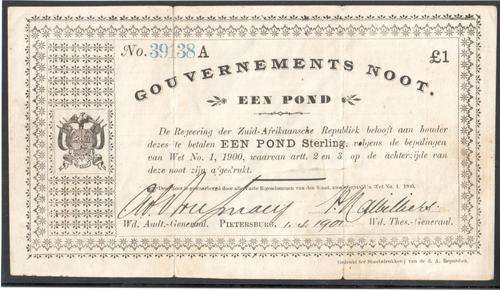 No. 39138 A
£1
GOUVERNEMENTS NOOT.
EEN POND
De Regeering der Zuid-Afrikaansche Republiek belooft aan houder
dezes te betalen EEN POND Sterling, volgens de bepalingen
van Wet No. 1, 1900, waarvan artt. 2 en 3 op de achterzijde van
deze noot zijn afgedrukt.
Deze Noot is gewaarborgd door alle vaste Eigendommen van den Staat, Wet No. 1, 1900.
Wd. Audt.-Generaal. PIETERSBURG, 1901 Wd. Thes.-Generaal.
Gedrukt ter Staatsdrukkerij van de Z. A. Republiek.